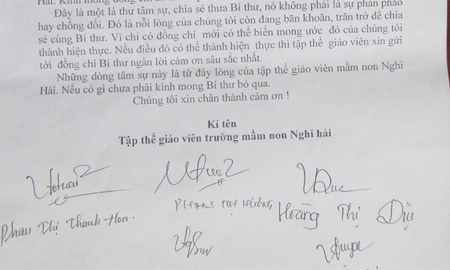 Hải. Kính mong
Đây là một lá thư tâm sự, chia sẻ thưa Bí thư, nó không phải là sự phản pháo
hay chống đối. Đó là nỗi lòng của chúng tôi còn đang băn khoăn, trăn trở để chia
sẻ cùng Bí thư. Vì chỉ có đồng chí mới có thể biến mong ước đó của chúng tôi
thành hiện thực. Nếu điều đó có thể thành hiện thực thì tập thể giáo viên xin gửi
tới đồng chí Bí thư ngàn lời cảm ơn sâu sắc nhất.
Những dòng tâm sự này là từ đáy lòng của tập thể giáo viên mầm non Nghi
Hải. Nếu có gì chưa phải kính mong Bí thư bỏ qua.
Chúng tôi xin chân thành cảm ơn !
Kí tên
Tập thể giáo viên trường mầm non Nghi hải
Phan Thị Thanh Hoa
Hoàng Thị Dịu